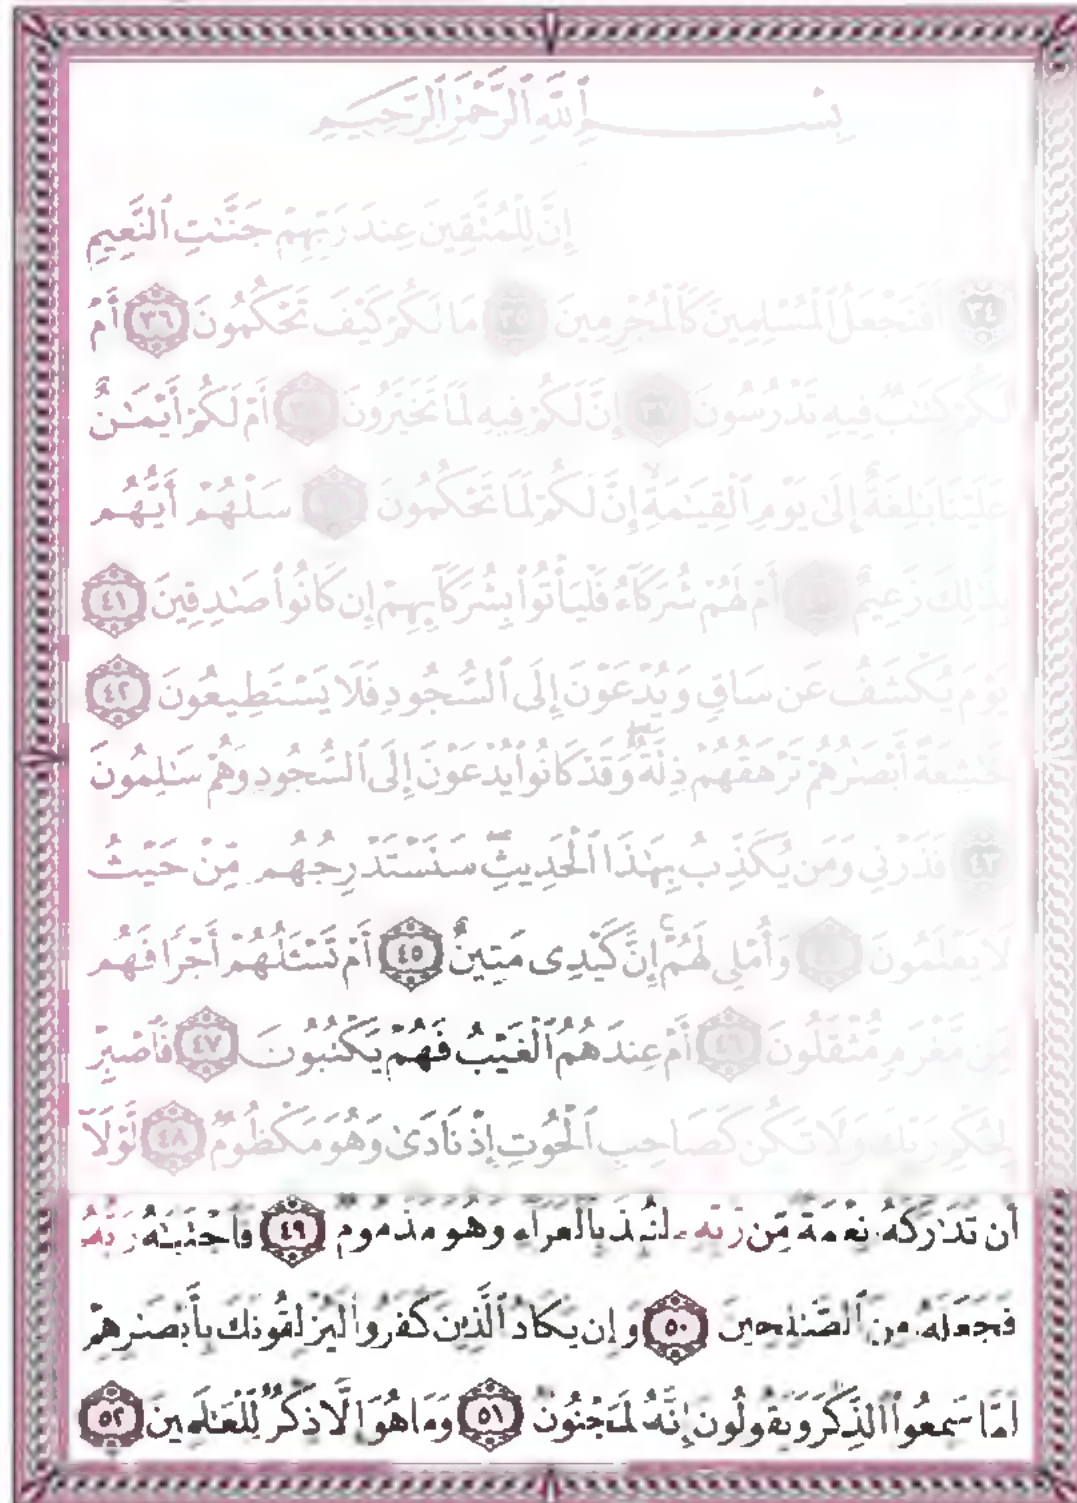 بِسْمِ ٱللَّهِ ٱلرَّحْمَٰنِ ٱلرَّحِيمِ
إِنَّ لِلْمُتَّقِينَ عِندَ رَبِّهِمْ جَنَّٰتِ ٱلنَّعِيمِ
٣٤ أَفَنَجْعَلُ ٱلْمُسْلِمِينَ كَٱلْمُجْرِمِينَ ٣٥ مَا لَكُمْ كَيْفَ تَحْكُمُونَ ٣٦ أَمْ
لَكُمْ كِتَٰبٌ فِيهِ تَدْرُسُونَ ٣٧ إِنَّ لَكُمْ فِيهِ لَمَا تَخَيَّرُونَ ٣٨ أَمْ لَكُمْ أَيْمَٰنٌ
عَلَيْنَا بَٰلِغَةٌ إِلَىٰ يَوْمِ ٱلْقِيَٰمَةِ ۙ إِنَّ لَكُمْ لَمَا تَحْكُمُونَ ٣٩ سَلْهُمْ أَيُّهُم
بِذَٰلِكَ زَعِيمٌ ٤٠ أَمْ لَهُمْ شُرَكَآءُ فَلْيَأْتُوا۟ بِشُرَكَآئِهِمْ إِن كَانُوا۟ صَٰدِقِينَ ٤١
يَوْمَ يُكْشَفُ عَن سَاقٍ وَيُدْعَوْنَ إِلَى ٱلسُّجُودِ فَلَا يَسْتَطِيعُونَ ٤٢
خَٰشِعَةً أَبْصَٰرُهُمْ تَرْهَقُهُمْ ذِلَّةٌ ۖ وَقَدْ كَانُوا۟ يُدْعَوْنَ إِلَى ٱلسُّجُودِ وَهُمْ سَٰلِمُونَ
٤٣ فَذَرْنِى وَمَن يُكَذِّبُ بِهَٰذَا ٱلْحَدِيثِ ۖ سَنَسْتَدْرِجُهُم مِّنْ حَيْثُ
لَا يَعْلَمُونَ ٤٤ وَأُمْلِى لَهُمْ ۚ إِنَّ كَيْدِى مَتِينٌ ٤٥ أَمْ تَسْـَٔلُهُمْ أَجْرًا فَهُم
مِّن مَّغْرَمٍ مُّثْقَلُونَ ٤٦ أَمْ عِندَهُمُ ٱلْغَيْبُ فَهُمْ يَكْتُبُونَ ٤٧ فَٱصْبِرْ
لِحُكْمِ رَبِّكَ وَلَا تَكُن كَصَاحِبِ ٱلْحُوتِ إِذْ نَادَىٰ وَهُوَ مَكْظُومٌ ٤٨ لَّوْلَآ
أَن تَدَٰرَكَهُۥ نِعْمَةٌ مِّن رَّبِّهِۦ لَنُبِذَ بِٱلْعَرَآءِ وَهُوَ مَذْمُومٌ ٤٩ فَٱجْتَبَٰهُ رَبُّهُۥ
فَجَعَلَهُۥ مِنَ ٱلصَّٰلِحِينَ ٥٠ وَإِن يَكَادُ ٱلَّذِينَ كَفَرُوا۟ لَيُزْلِقُونَكَ بِأَبْصَٰرِهِمْ
لَمَّا سَمِعُوا۟ ٱلذِّكْرَ وَيَقُولُونَ إِنَّهُۥ لَمَجْنُونٌ ٥١ وَمَا هُوَ إِلَّا ذِكْرٌ لِّلْعَٰلَمِينَ ٥٢